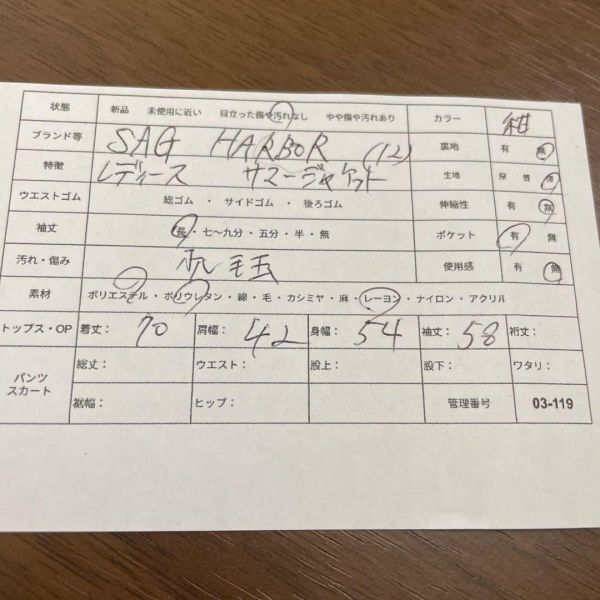 状態 新品 未使用に近い 目立った傷や汚れなし やや傷や汚れあり カラー 紺
ブランド等 SAG HARBOR (12) 裏地 有 無
特徴 レディース サマージャケット 生地 厚 普 薄
ウエストゴム 総ゴム ・ サイドゴム ・ 後ろゴム 伸縮性 有 無
袖丈 長・七〜九分・五分・半・無 ポケット 有 無
汚れ・傷み 毛玉 使用感 有 無
素材 ポリエステル・ポリウレタン・綿・毛・カシミヤ・麻・レーヨン・ナイロン・アクリル
トップス・OP 着丈: 70 肩幅: 42 身幅: 54 袖丈: 58 裄丈:
パンツ スカート 総丈: ウエスト: 股上: 股下: ワタリ:
裾幅: ヒップ: 管理番号 03-119